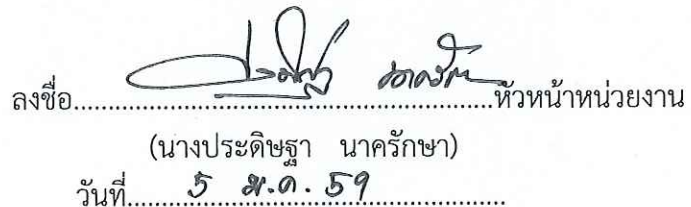 ลงชื่อ......................................................หัวหน้าหน่วยงาน
(นางประดิษฐา นาครักษา)
วันที่........5 ม.ค. 59........................